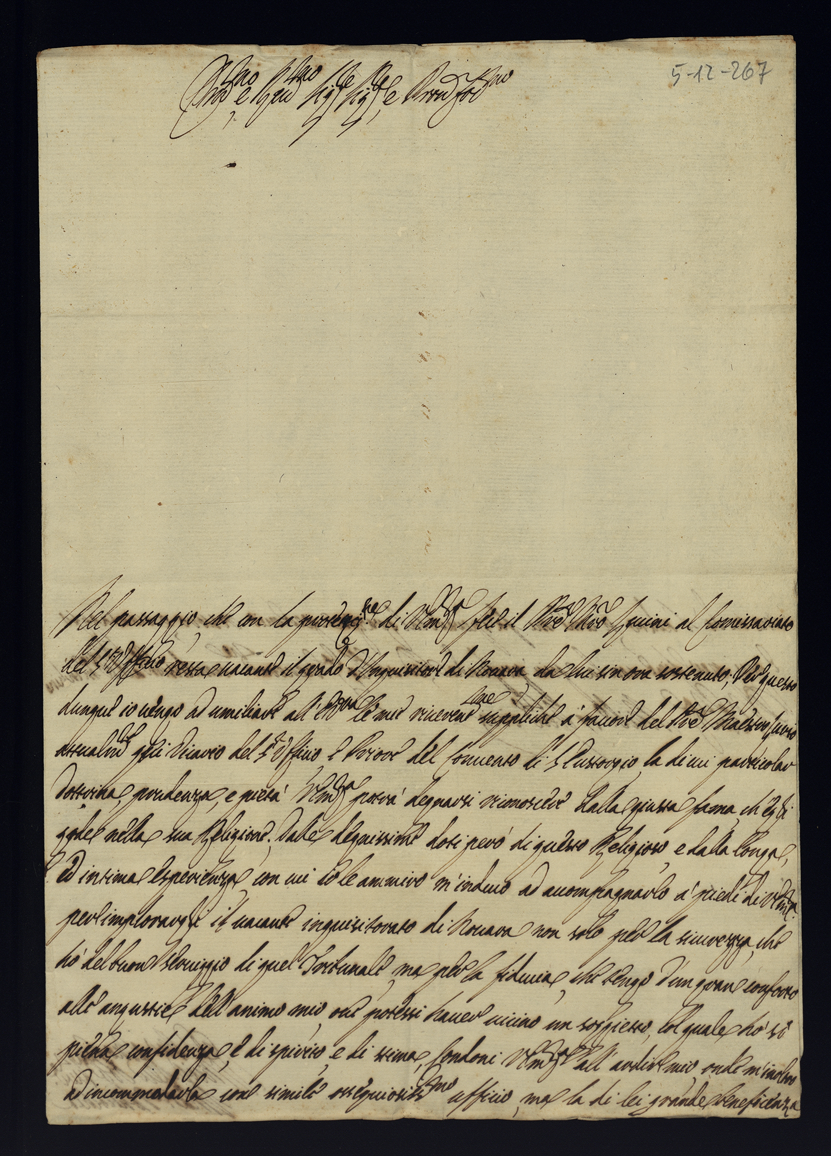 5-12-267
Ill.mo e Rev.mo Sig.re Sig.re e Pron Col.mo
Nel passaggio, che con la protez.ne di V.S. Ill.ma fece il P.re M.ro al Comissariato
del S. Offitio resta vacante il grado d'Inquisitore di Novara da lui sin ora sostenuto, Per questo
dunque io vengo ad umiliare all' le mie riverent.me suppliche à favore del P.re Maestro
attualm.te Vicario del S. Offitio e Priore del Convento di S. Eustorgio, la di cui particolar
Dottrina, prudenza, e pietà potrà degnarsi riconoscere dalla giusta fama, ch'Egli
gode nella sua Religione. Dalle degnissime doti però di questo Religioso, e dalla longa,
ed intima esperienza, con cui io le ammiro m'induco ad accompagnarlo a' piedi di
per implorargli il vacante inquisitorato di Novara non solo per la sicurezza, che
hò del buon servizio di quel Tribunale, ma per la fiducia, che tengo d'un gran conforto
alle angustie dell'animo mio ove potessi haver vicino un soggetto, col quale hò sì
piena confidenza, e di spirito, e di stima, Condoni all' ardire mio onde m'inoltro
ad incommodarla con simile ossequiosiss.mo ufficio, ma la di lei grande beneficienza